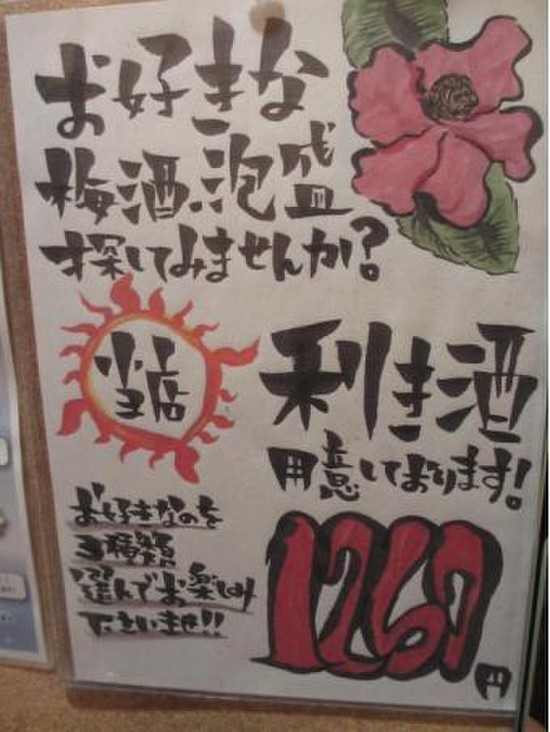 お好きな
梅酒、泡盛
探してみませんか?
当店
利き酒
用意しております!
お好きなのを
3種類
選んでお楽しみ
下さいませ!!
1260円